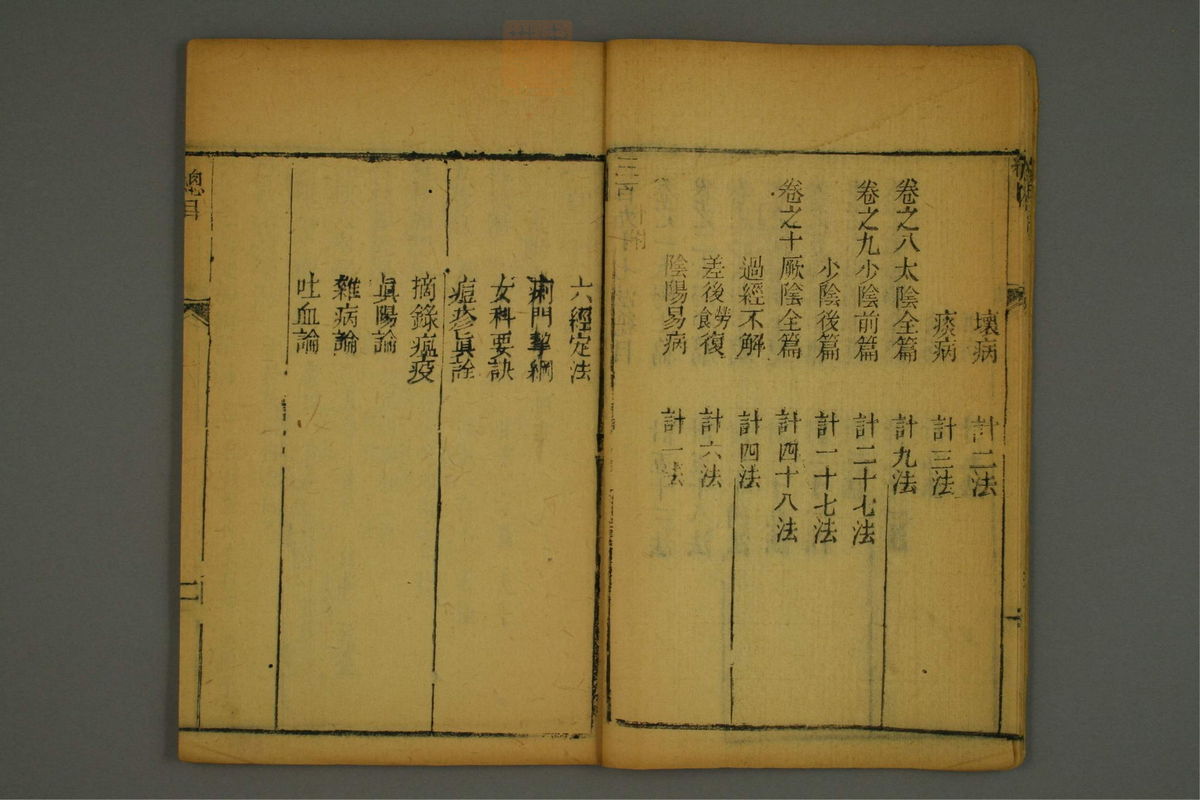 壞病 計二法
痰病 計三法
卷之八太陰全篇 計九法
卷之九少陰前篇 計二十七法
少陰後篇 計一十七法
卷之十厥陰全篇 計四十八法
過經不解 計四法
差後勞食復 計六法
陰陽易病 計一法
六經定法
痢門挈綱
女科要訣
痘疹眞詮
摘錄瘟疫
眞陽論
雜病論
吐血論
總目